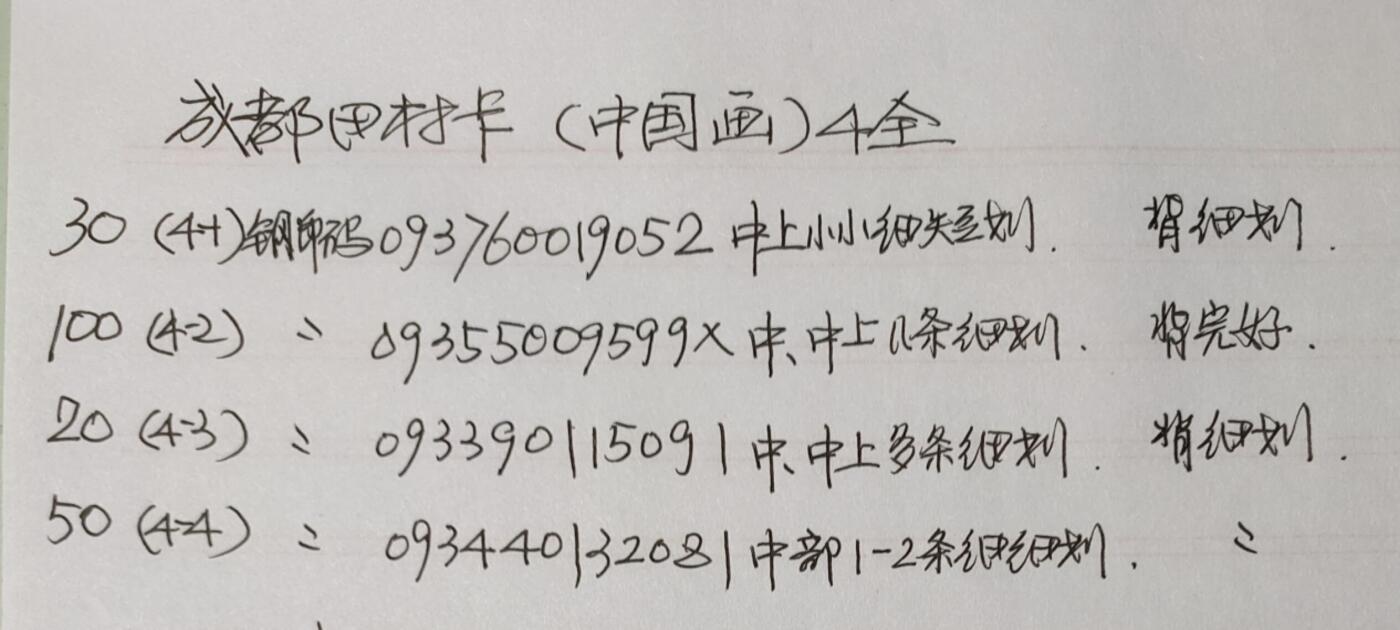 成都田村卡（中国画）4全
30 (4-1)钢印码093760019052 中上小小细短划. 背细划.
100 (4-2) 〃 09355009599X 中、中上几条细划. 背完好.
20 (4-3) 〃 093390115091 中、中上多条细划. 背细划.
50 (4-4) 〃 093440132081 中部1-2条细细划. 〃